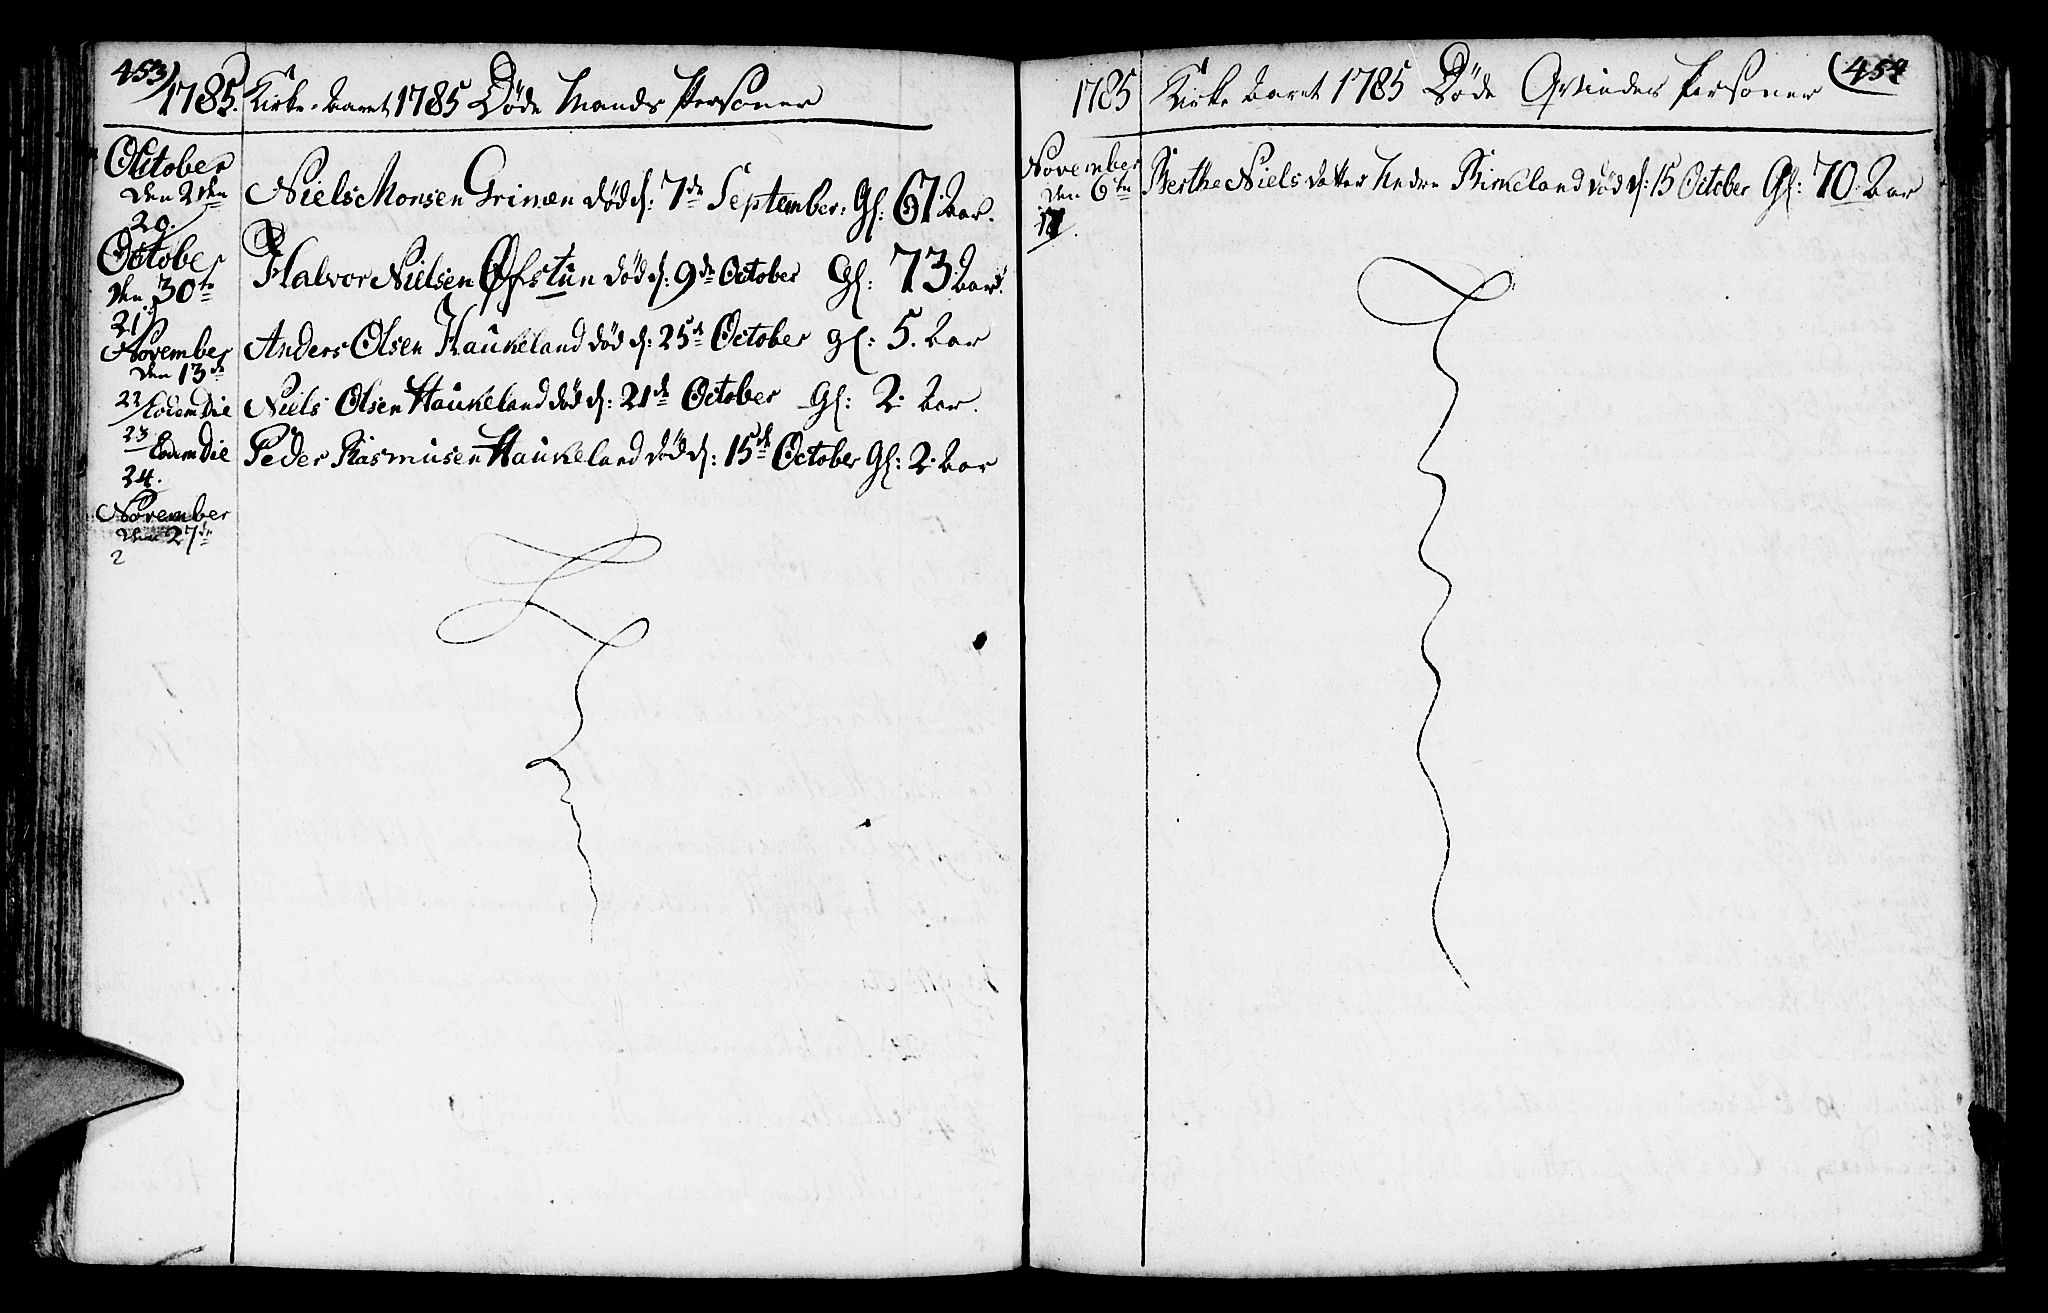 453)
1785. Kirke-Aaret 1785 Døde Mands Personer
October
den 2den
20.
Niels Monsen Grimen død d: 7de September. Gl: 67. Aar.
October
den 30te
21
Halvor Nielsen Øfstun død d: 9de October Gl: 73. Aar.
November
den 13de
22
Anders Olsen Haukeland død d: 25de October gl: 5. Aar
Eodem Die
23
Niels Olsen Haukeland død d: 21de October Gl: 2. Aar.
Eodem Die
24.
Peder Rasmusen Haukeland død d: 15de October Gl: 2. Aar
November
den 27de
2
(454
1785 Kirke Aaret 1785 Døde Qvindes Personer
November
den 6te
Berthe Niels datter Indre Birkeland død d: 15 October Gl: 70. Aar